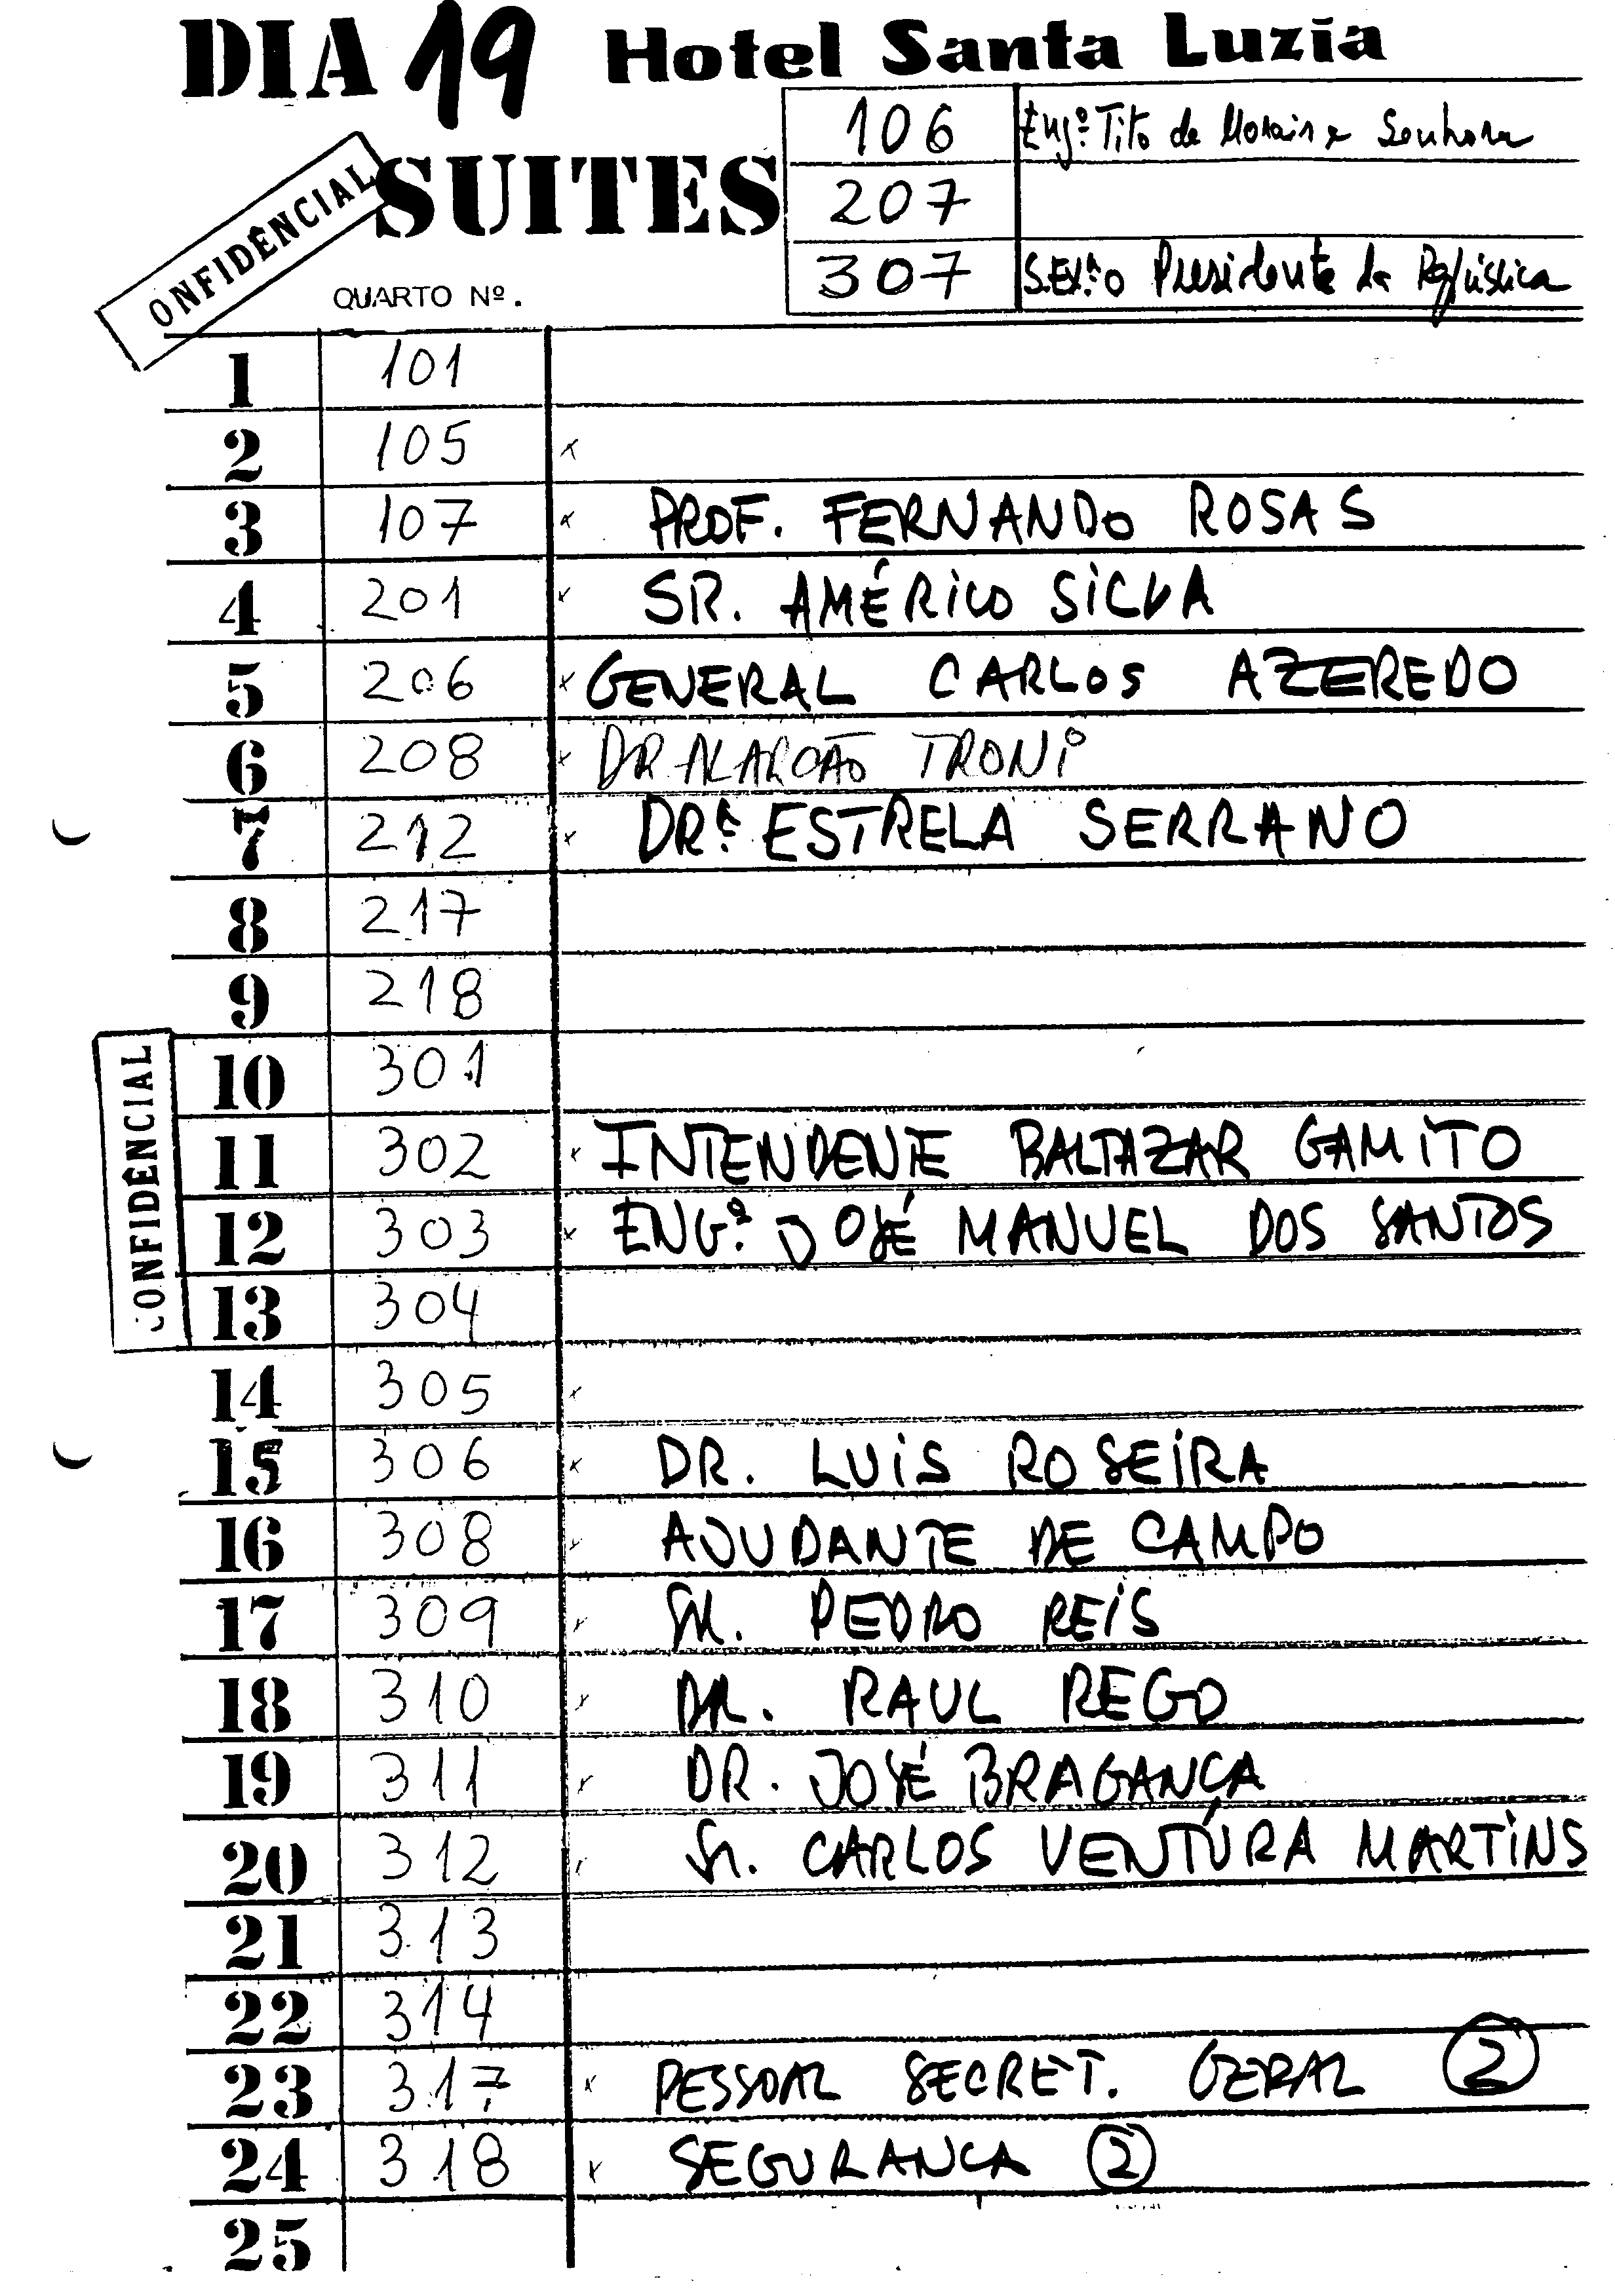 DIA 19 Hotel Santa Luzia
CONFIDÊNCIAL
SUITES
106 Engº. Tito de Morais e Senhora
207
307 S.Exª. o Presidente da República
QUARTO Nº.
1 101
2 105 x
3 107 x PROF. FERNANDO ROSAS
4 201 x SR. AMÉRICO SILVA
5 206 x GENERAL CARLOS AZEREDO
6 208 x DR ALARCÃO TRONI
7 212 x DRª. ESTRELA SERRANO
8 217
9 218
10 301
11 302 x INTENDENTE BALTAZAR GAMITO
12 303 x ENGº. JOSÉ MANUEL DOS SANTOS
13 304
14 305 x
15 306 x DR. LUIS ROSEIRA
16 308 x AJUDANTE DE CAMPO
17 309 x SR. PEDRO REIS
18 310 x DR. RAUL REGO
19 311 x DR. JOSÉ BRAGANÇA
20 312 Sr. CARLOS VENTURA MARTINS
21 313
22 314
23 317 x PESSOAL SECRET. GERAL 2
24 318 x SEGURANCA 2
25
CONFIDÊNCIAL